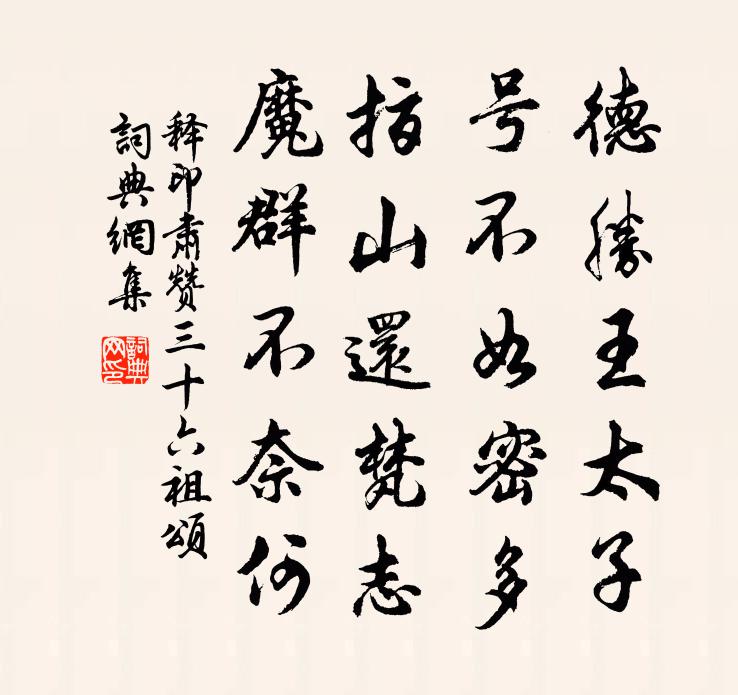 德勝王太子
号不如密多
指山還梵志
魔群不奈何
释印肃赞三十六祖頌
詞典網集
詞典网印